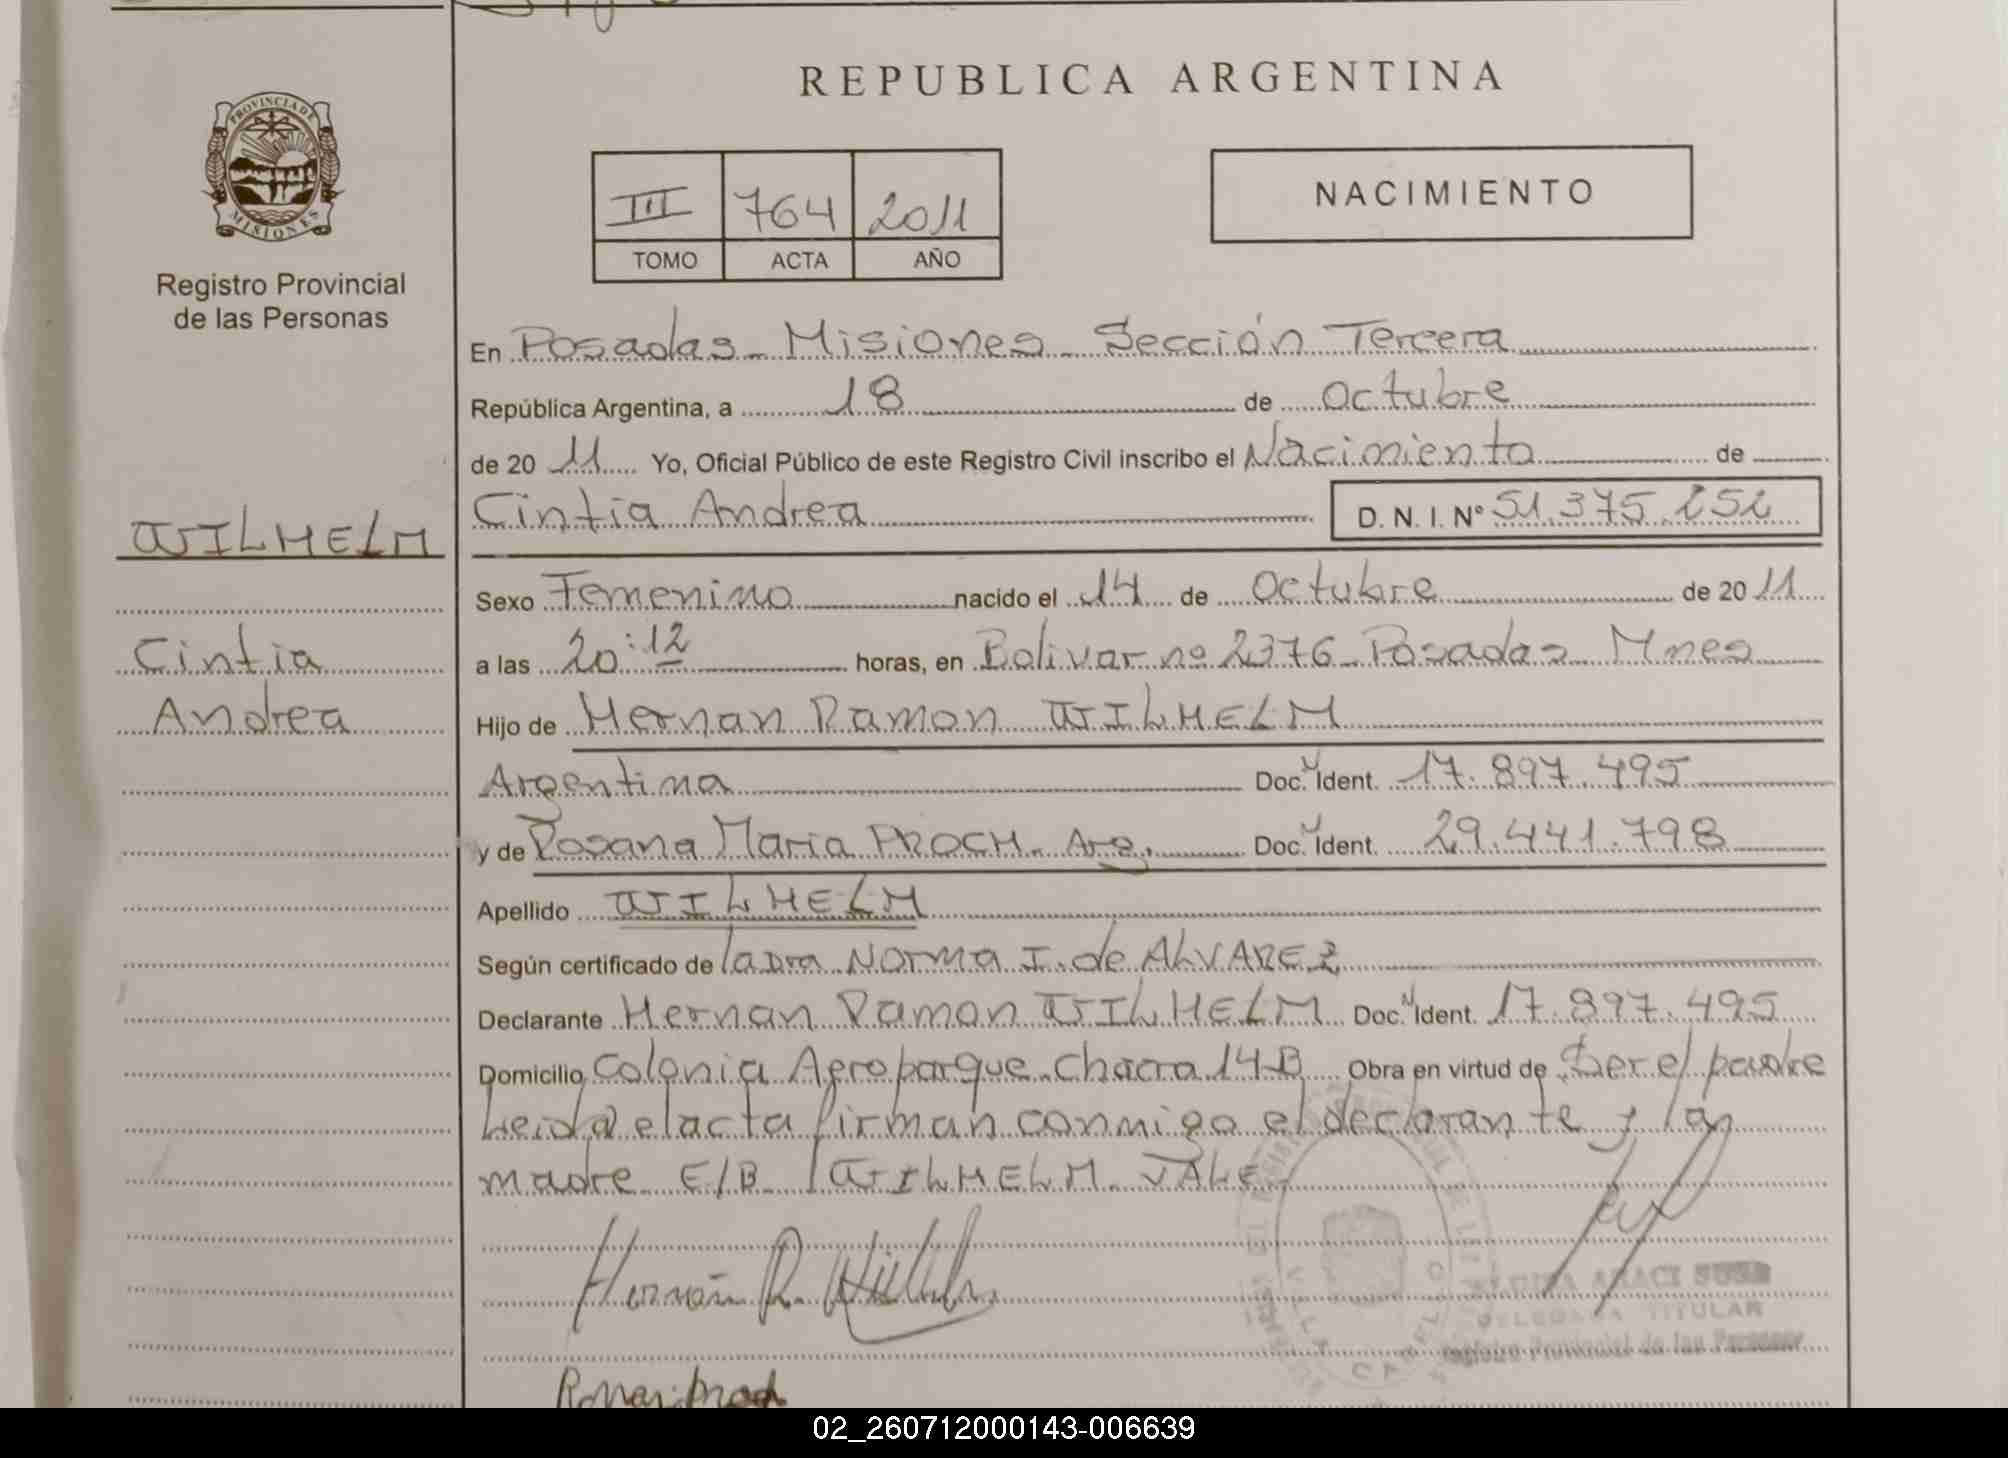 REPUBLICA ARGENTINA
PROVINCIA DE
MISIONES
Registro Provincial
de las Personas
III 764 2011
TOMO ACTA AÑO
NACIMIENTO
En Posadas - Misiones - Sección Tercera
República Argentina, a 18 de Octubre
de 20 11 Yo, Oficial Público de este Registro Civil inscribo el Nacimiento de
WILHELM
Cintia Andrea
Cintia Andrea D. N. I. Nº 51.375.252
Sexo Femenino nacido el 14 de Octubre de 20 11
a las 20:12 horas, en Bolivar nº 2376 - Posadas Mnes
Hijo de Hernan Ramon WILHELM
Argentina Doc. N Ident. 17.897.495
y de Rosana Maria PROCH. Arg. Doc. N Ident. 29.441.798
Apellido WILHELM
Según certificado de la Dra Norma I. de ALVAREZ
Declarante Hernan Ramon WILHELM Doc. N Ident. 17.897.495
Domicilio Colonia Aeroparque - Chacra 14 B Obra en virtud de Ser el padre
Leida el acta firman conmigo el declarante y la
madre E/B / WILHELM - VALE
Hernán R. Wilhelm
ARACI
DELEGADA TITULAR
Registro Provincial de las Personas
02_260712000143-006639